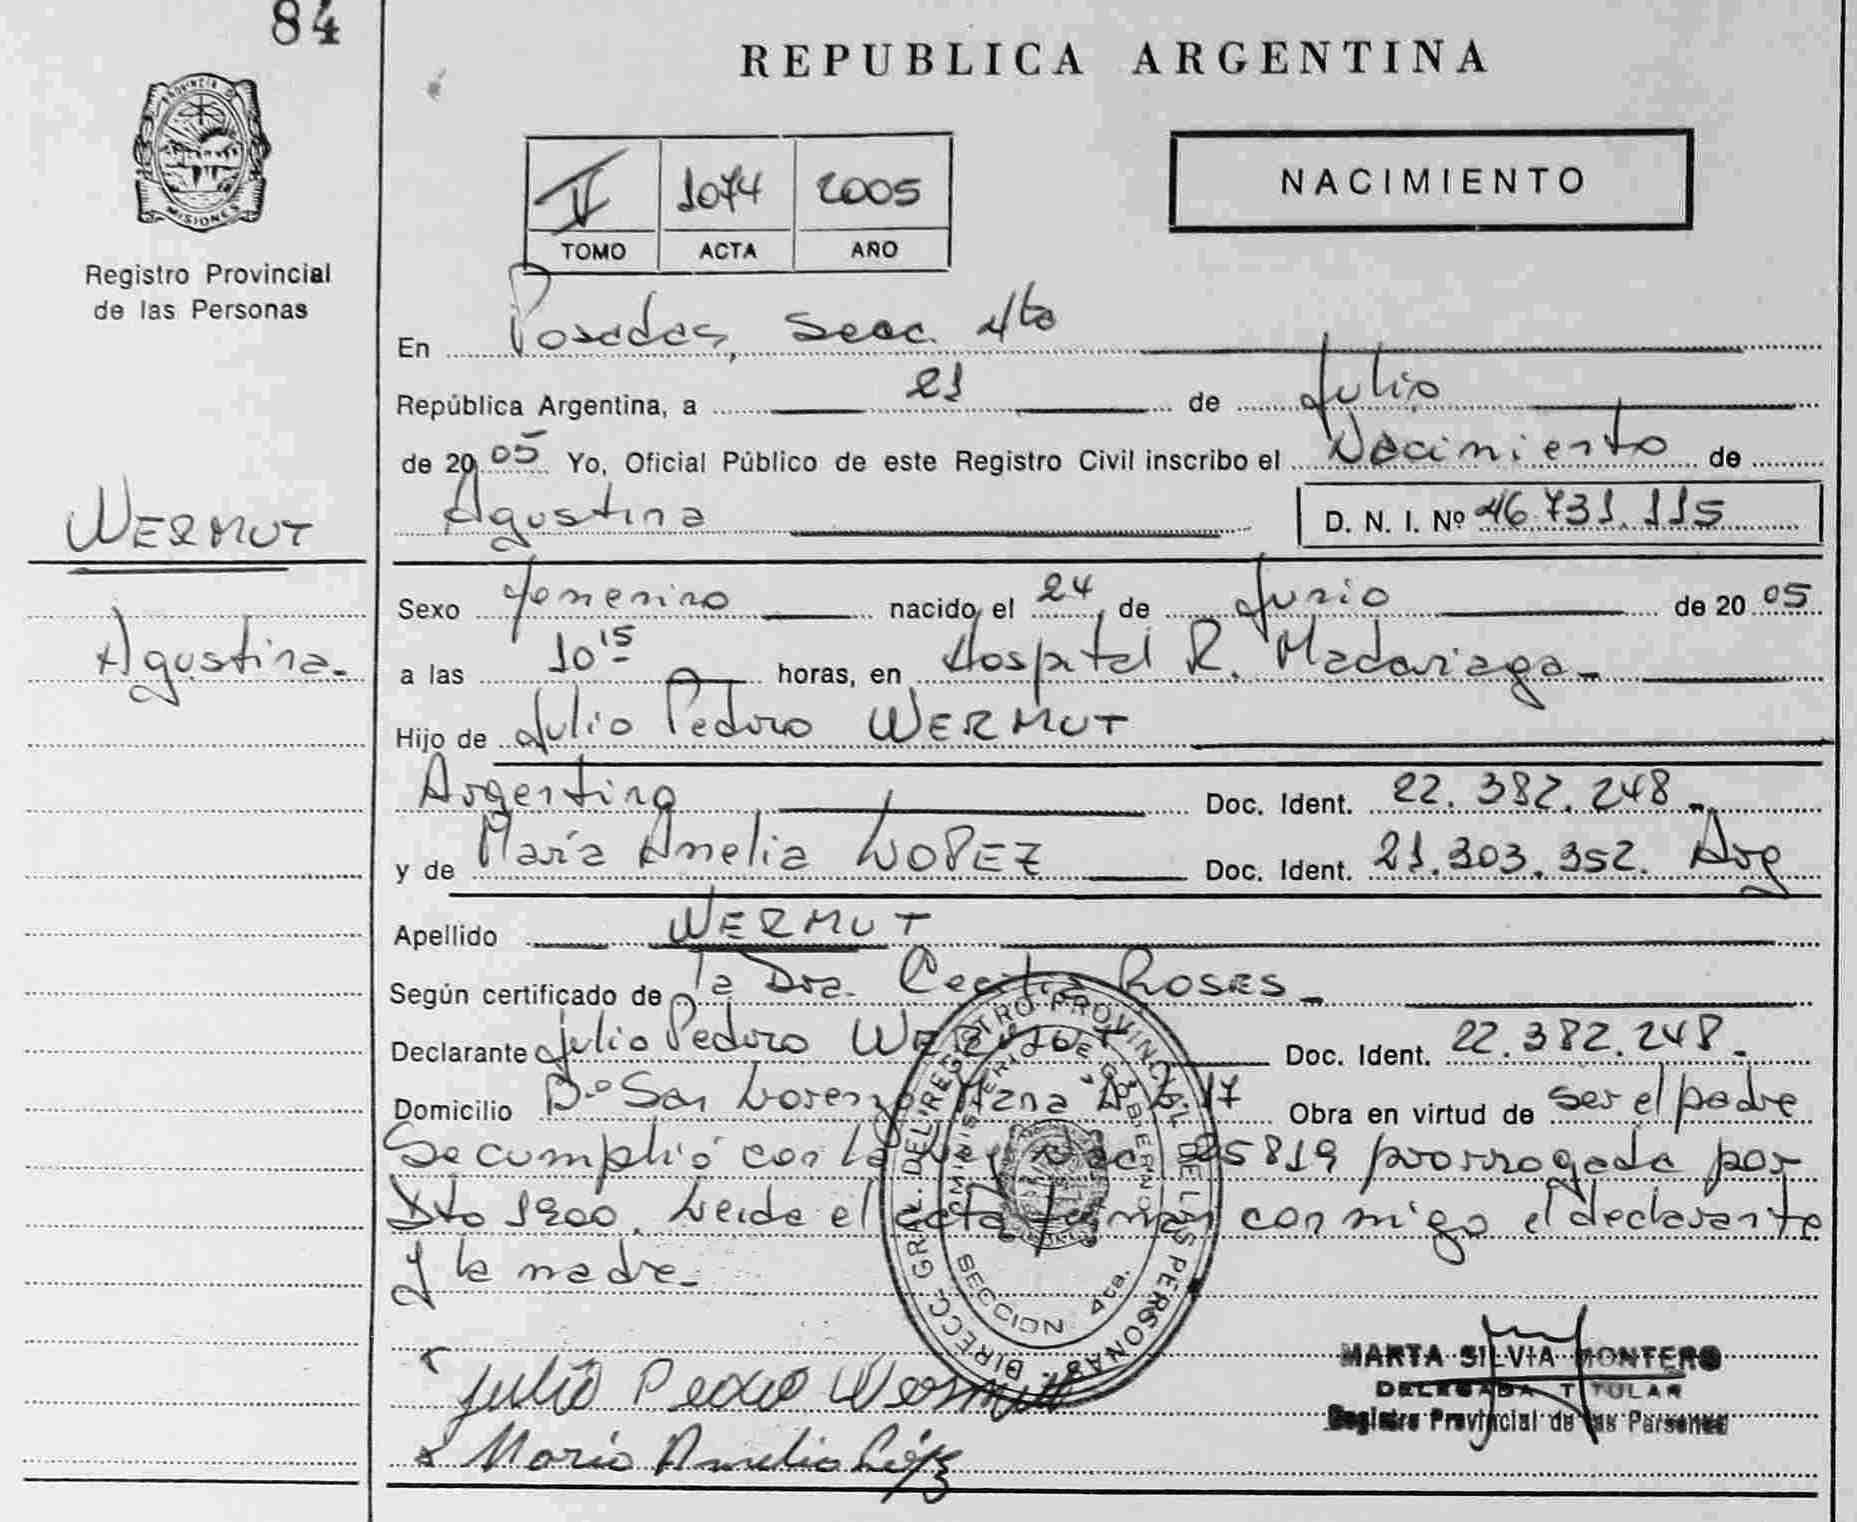 84
REPUBLICA ARGENTINA
PROVINCIA D MISIONES
Registro Provincial
de las Personas
II 1074 2005
TOMO ACTA AÑO
NACIMIENTO
En Posadas, Secc. 4ta
República Argentina, a 21 de Julio
de 2005 Yo, Oficial Público de este Registro Civil inscribo el Nacimiento de
Agustina D. N. I. Nº 46.731.115
WERMUT
Agustina.-
Sexo femenino nacido el 24 de Junio de 2005
a las 10 15 horas, en Hospital R. Madariaga.-
Hijo de Julio Pedro WERMUT
Argentino Doc. Ident. 22.382.248.-
y de María Amelia LOPEZ Doc. Ident. 21.303.352. Arg
Apellido WERMUT
Según certificado de la Dra. Cecilia ROSES.-
Declarante Julio Pedro WERMUT Doc. Ident. 22.382.248.-
Domicilio Bº San Lorenzo Mzna 17 Obra en virtud de ser el padre
Se cumplió con la Ley Nac 25819 prorrogada por
Dto 1900. Leida el acta firman conmigo el declarante
y la madre.-
DIRECC. GRAL. DEL REGISTRO PROVINCIAL DE LAS PERSONAS
MINISTERIO DE GOBIERNO
SECCION 4ta.
Julio Pedro Wermut
Maria Amelia López
MARTA SILVIA MONTERO
DELEGADA TITULAR
Registro Provincial de las Personas